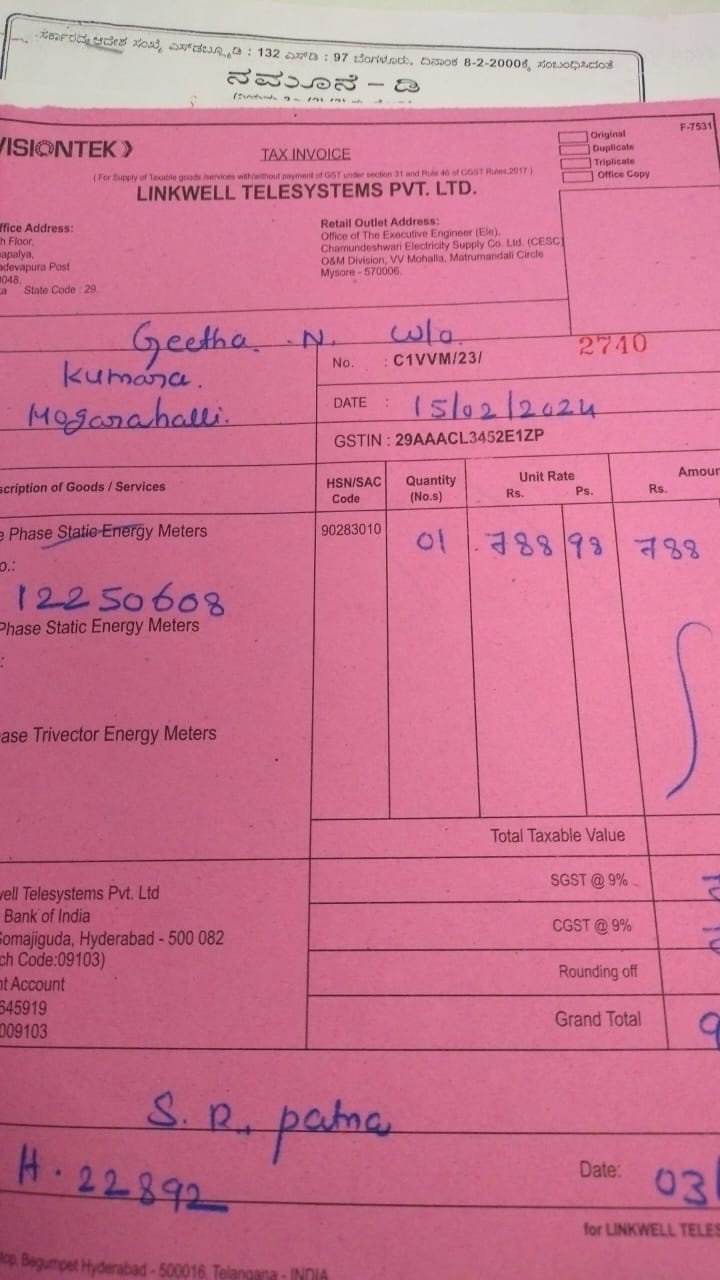 ಸರ್ಕಾರದ ಆದೇಶ ಸಂಖ್ಯೆ ಎಸ್‌ಡಬ್ಲ್ಯೂಡಿ : 132 ಎಸ್‌ಡಿ : 97 ಬೆಂಗಳೂರು, ದಿನಾಂಕ 8-2-2000ಕ್ಕೆ ಸಂಬಂಧಿಸಿದಂತೆ
ನಮೂನೆ - ಡಿ
VISIONTEK
TAX INVOICE
Original
Duplicate
Triplicate
Office Copy
F-7531
( For Supply of Taxable goods /services with/without payment of GST under section 31 and Rule 46 of CGST Rules.2017 )
LINKWELL TELESYSTEMS PVT. LTD.
ffice Address:
h Floor,
apalya,
adevapura Post
0048,
a State Code : 29
Retail Outlet Address:
Office of The Executive Engineer (Ele),
Chamundeshwari Electricity Supply Co. Ltd. (CESC)
O&M Division, VV Mohalla, Matrumandali Circle
Mysore - 570006.
Geetha. N. w/o
Kumara.
Mogarahalli.
No. : C1VVM/23/ 2740
DATE : 15/02/2024
GSTIN : 29AAACL3452E1ZP
scription of Goods / Services
HSN/SAC Code
Quantity (No.s)
Unit Rate
Rs. Ps.
Amoun
Rs.
e Phase Static Energy Meters 90283010 01 788 98 788
o.:
12250608
Phase Static Energy Meters
:
ase Trivector Energy Meters
Total Taxable Value
SGST @ 9%
CGST @ 9%
Rounding off
Grand Total 9
well Telesystems Pvt. Ltd
Bank of India
Somajiguda, Hyderabad - 500 082
ch Code:09103)
nt Account
645919
009103
S. R. patna
H. 22892
Date: 03
for LINKWELL TELES
top, Begumpet Hyderabad - 500016, Telangana - INDIA